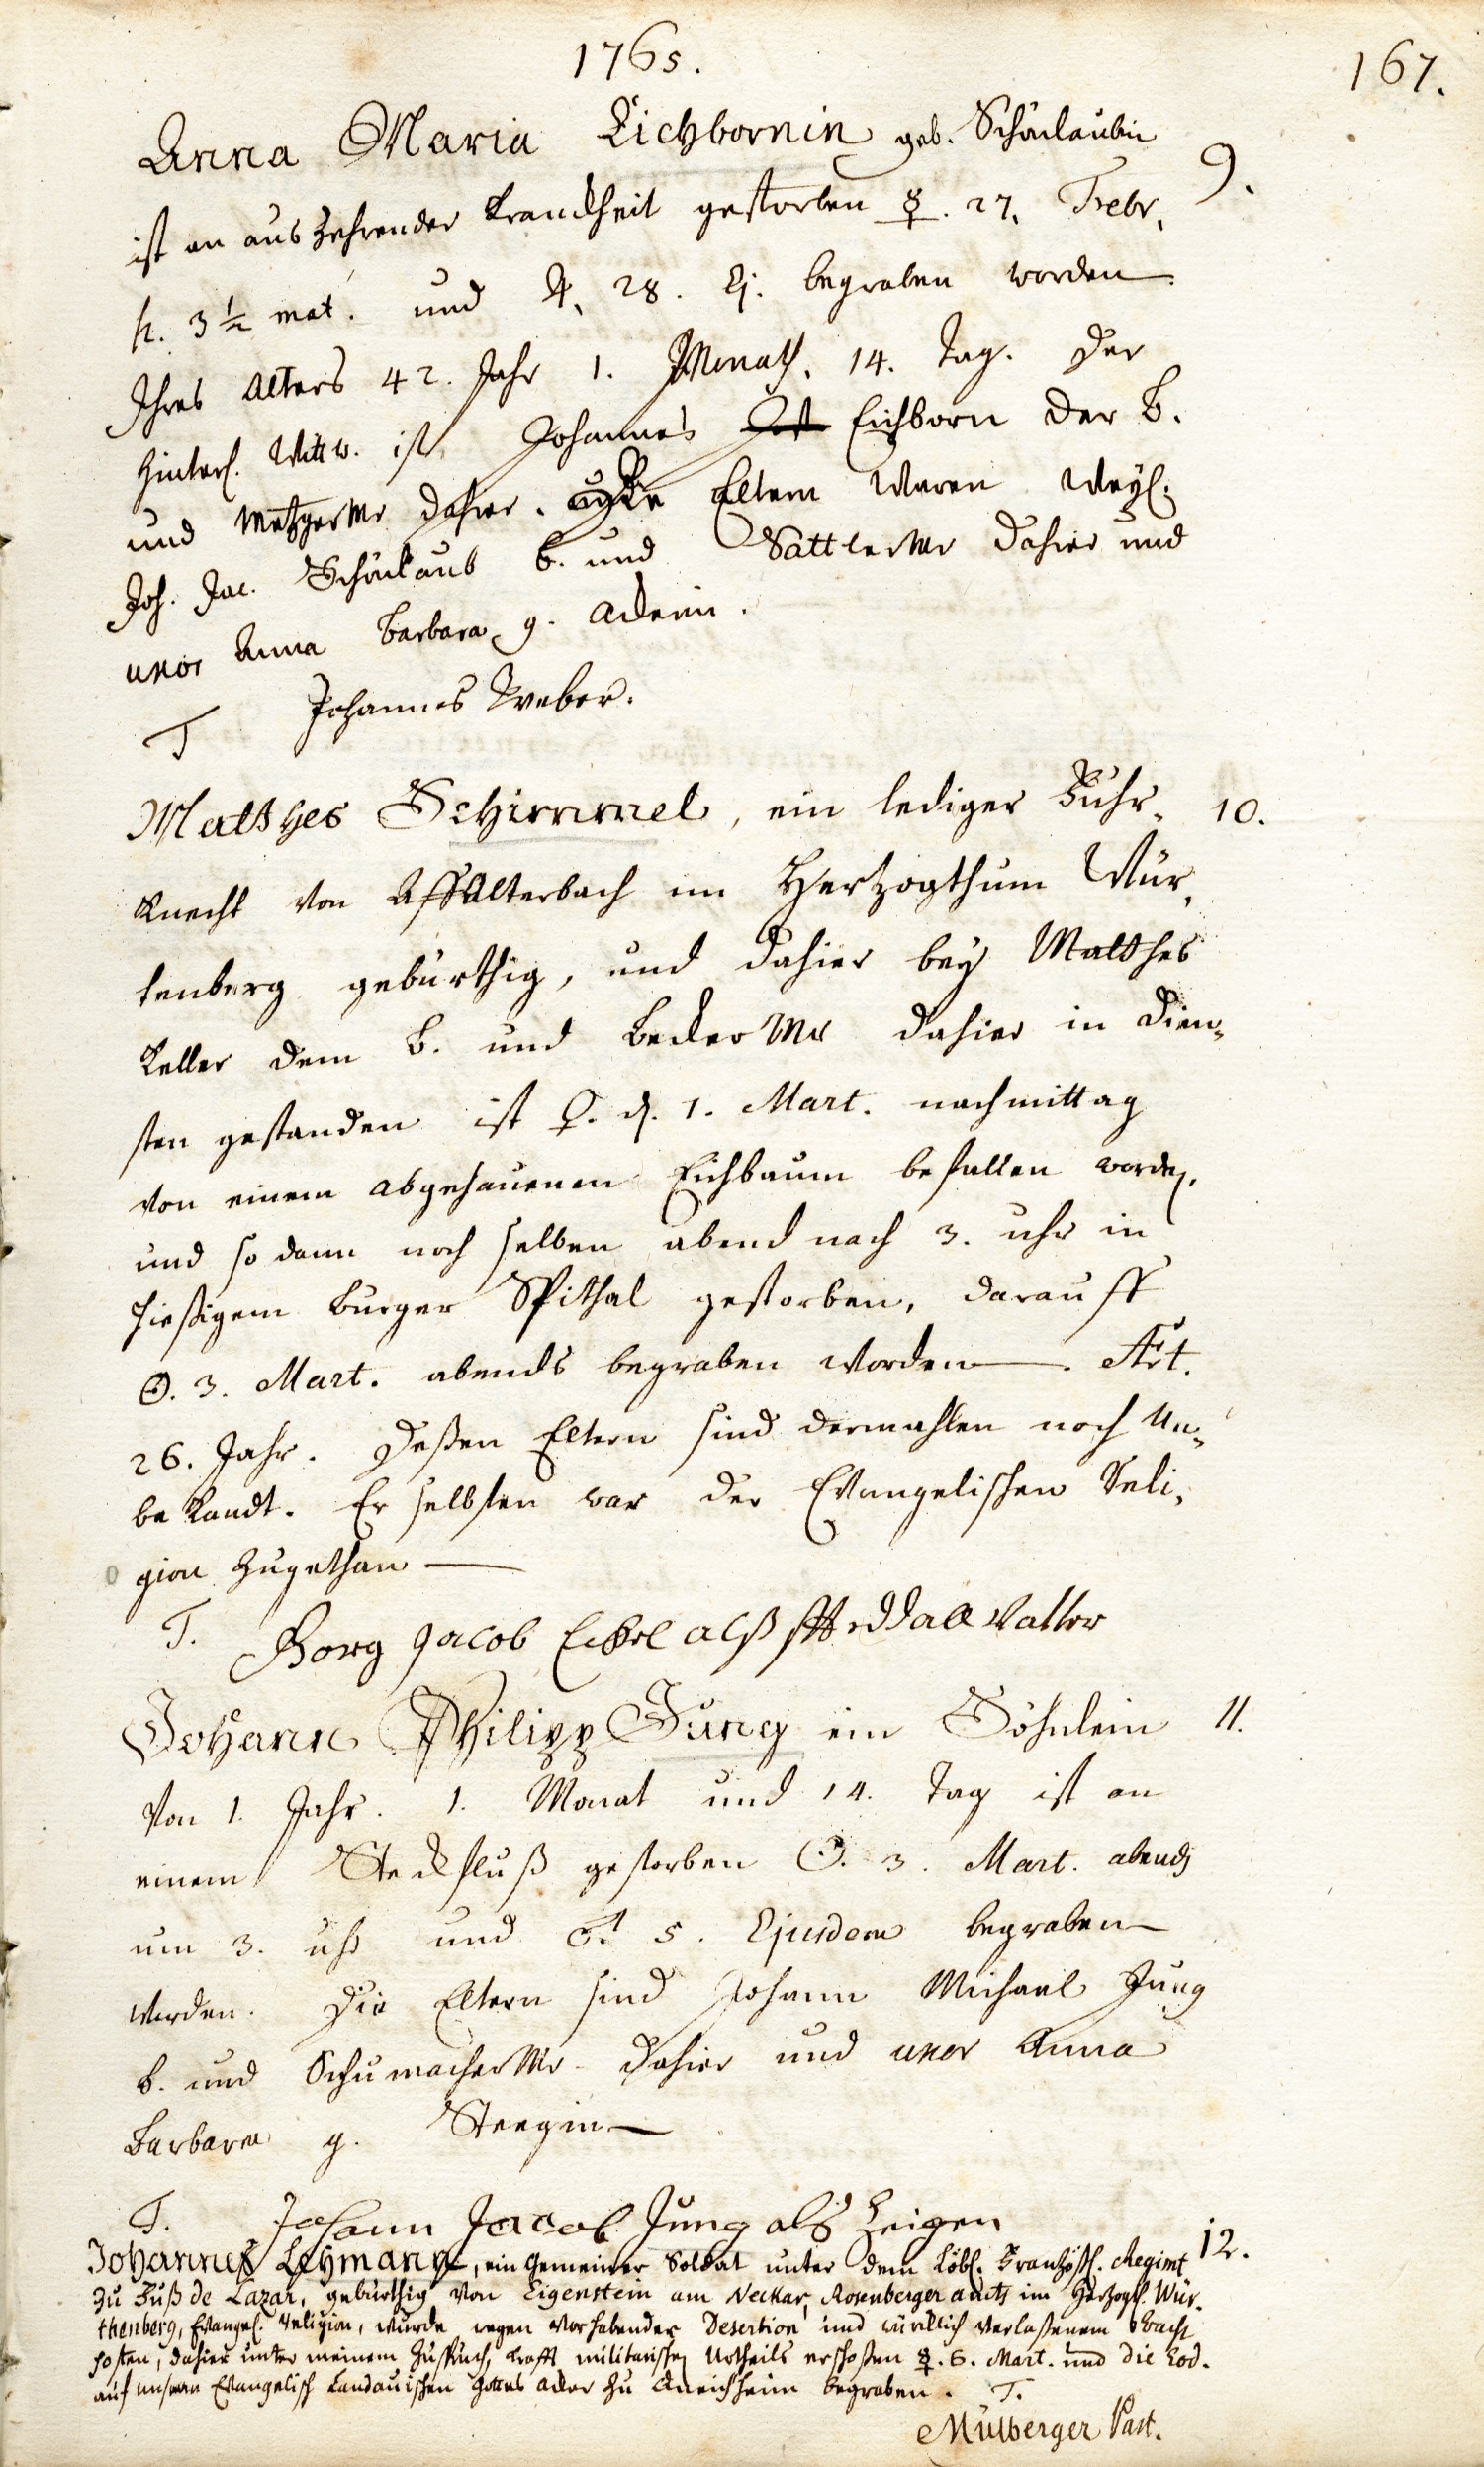 1765.
167.
Anna Maria Eichbornin geb. Schönlaubin
9.
ist an auszehrender Kranckheit gestorben ☿. 27. Febr.
h. 3½ mat. und ♃. 28. Ej. begraben worden
Ihres Alters 42. Jahr 1. Monath. 14. Tag. Der
hinterl. Wittw. ist Johannes Eichborn der B.
und Metzger Mr dahier. Eltern waren weyl.
Joh. Jac. Schönlaub B. und Sattler Mr dahier und
uxor Anna Barbara g. Ackerin.
T Johannes Weber.
Matthes Schimmel, ein lediger Fuhr-
10.
Knecht von Affalterbach im Hertzogthum Wür-
tenberg gebürthig, und dahier bey Matthes
Keller dem B. und Becker Mr dahier in Dien-
sten gestanden ist ♀. d. 1. Mart. nachmittag
von einem abgehauenen Eichbaum befallen worden,
und so dann noch selben abend nach 3. uhr in
hießigem Burger Spithal gestorben, darauff
☉. 3. Mart. abends begraben worden. Aet.
26. Jahr. Deßen Eltern sind dermahlen noch Un-
bekandt. Er selbsten war der Evangelischen Reli-
gion zugethan
T. Gorg Jacob Eckel alß Vatter
Johann Philipp Jung ein Söhnlein
11.
von 1. Jahr. 1. Monat und 14. Tag ist an
einem Steckfluß gestorben ☉. 3. Mart. abends
um 3. uhr und ♂. 5. Ejusdem begraben
worden. Die Eltern sind Johann Michael Jung
B. und Schumacher Mr dahier und uxor Anna
Barbara g. Steegin
T. Johann Jacob Jung als Zeigen
Johannes Leymann, ein Gemeiner Soldat unter dem Löbl. Frantzößl. Regimt
12.
zu Fuß de Lazar, gebürthig von Eigenstein am Neckar, Rosenberger amts im Hertzogl. Wür-
thenberg, Evangel. Religion, wurde wegen vorhabender Desertion und würcklich verlaßenem Wacht
posten, dahier unter meinem Zuspruch, Krafft militarischen Urtheils erschoßen ☿. 6. Mart. und die Eod.
auf unseren Evangelisch Landauischen Gottes acker zu Queichheim begraben. T.
Mülberger Past.